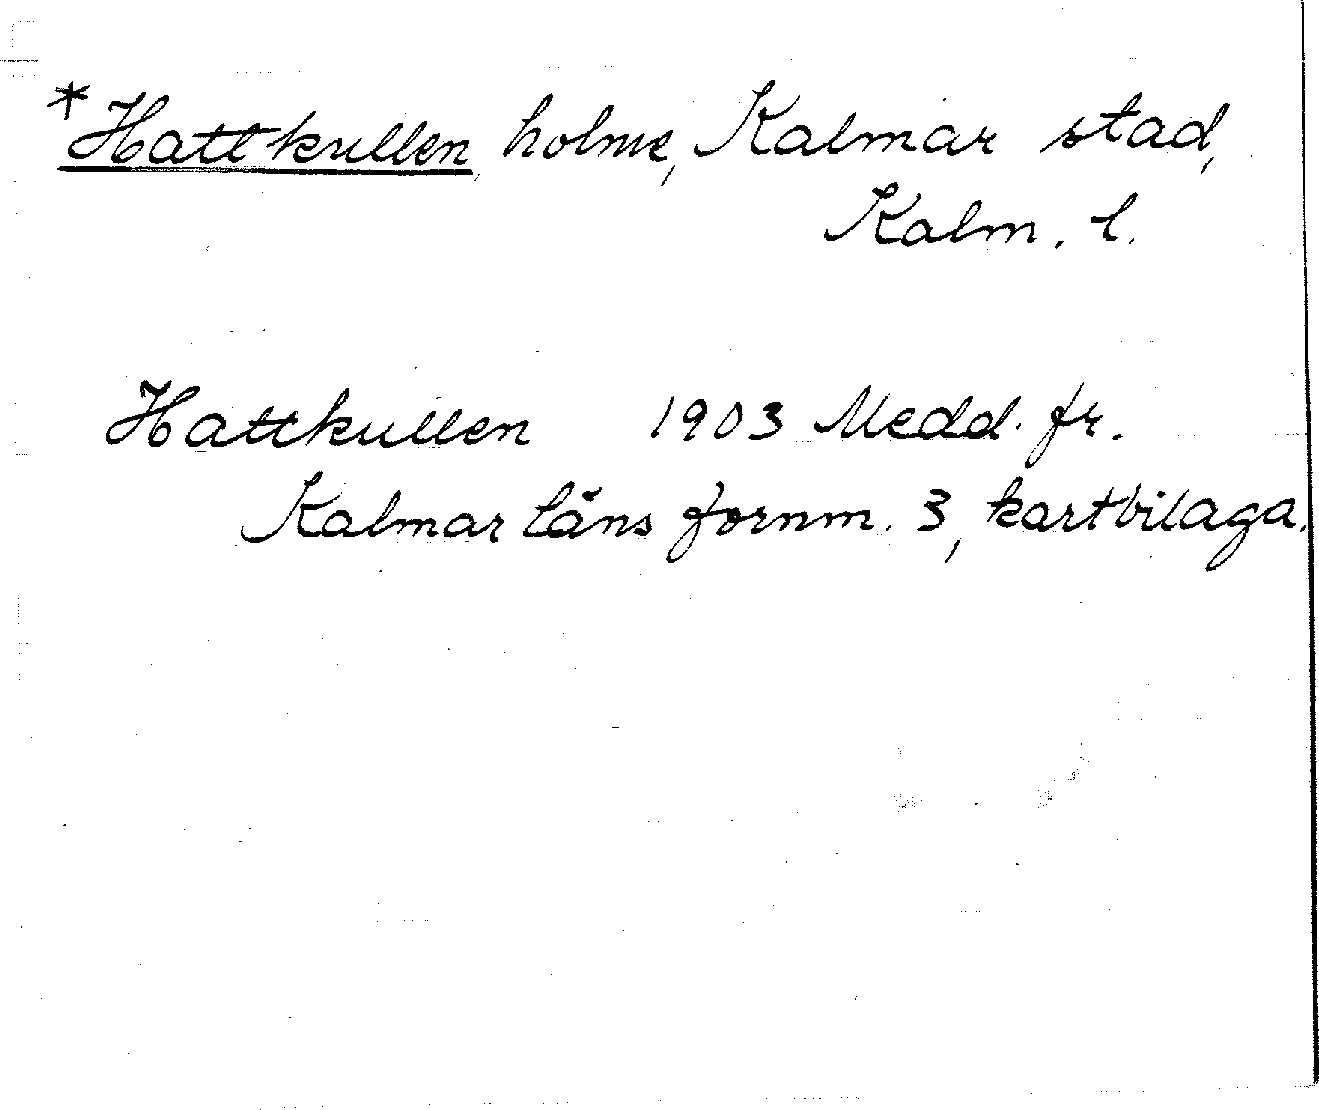 *Hattkullen, holme, Kalmar stad,
Kalm. l.
Hattkullen 1903 Medd. fr.
Kalmar läns fornm. 3, kartbilaga.